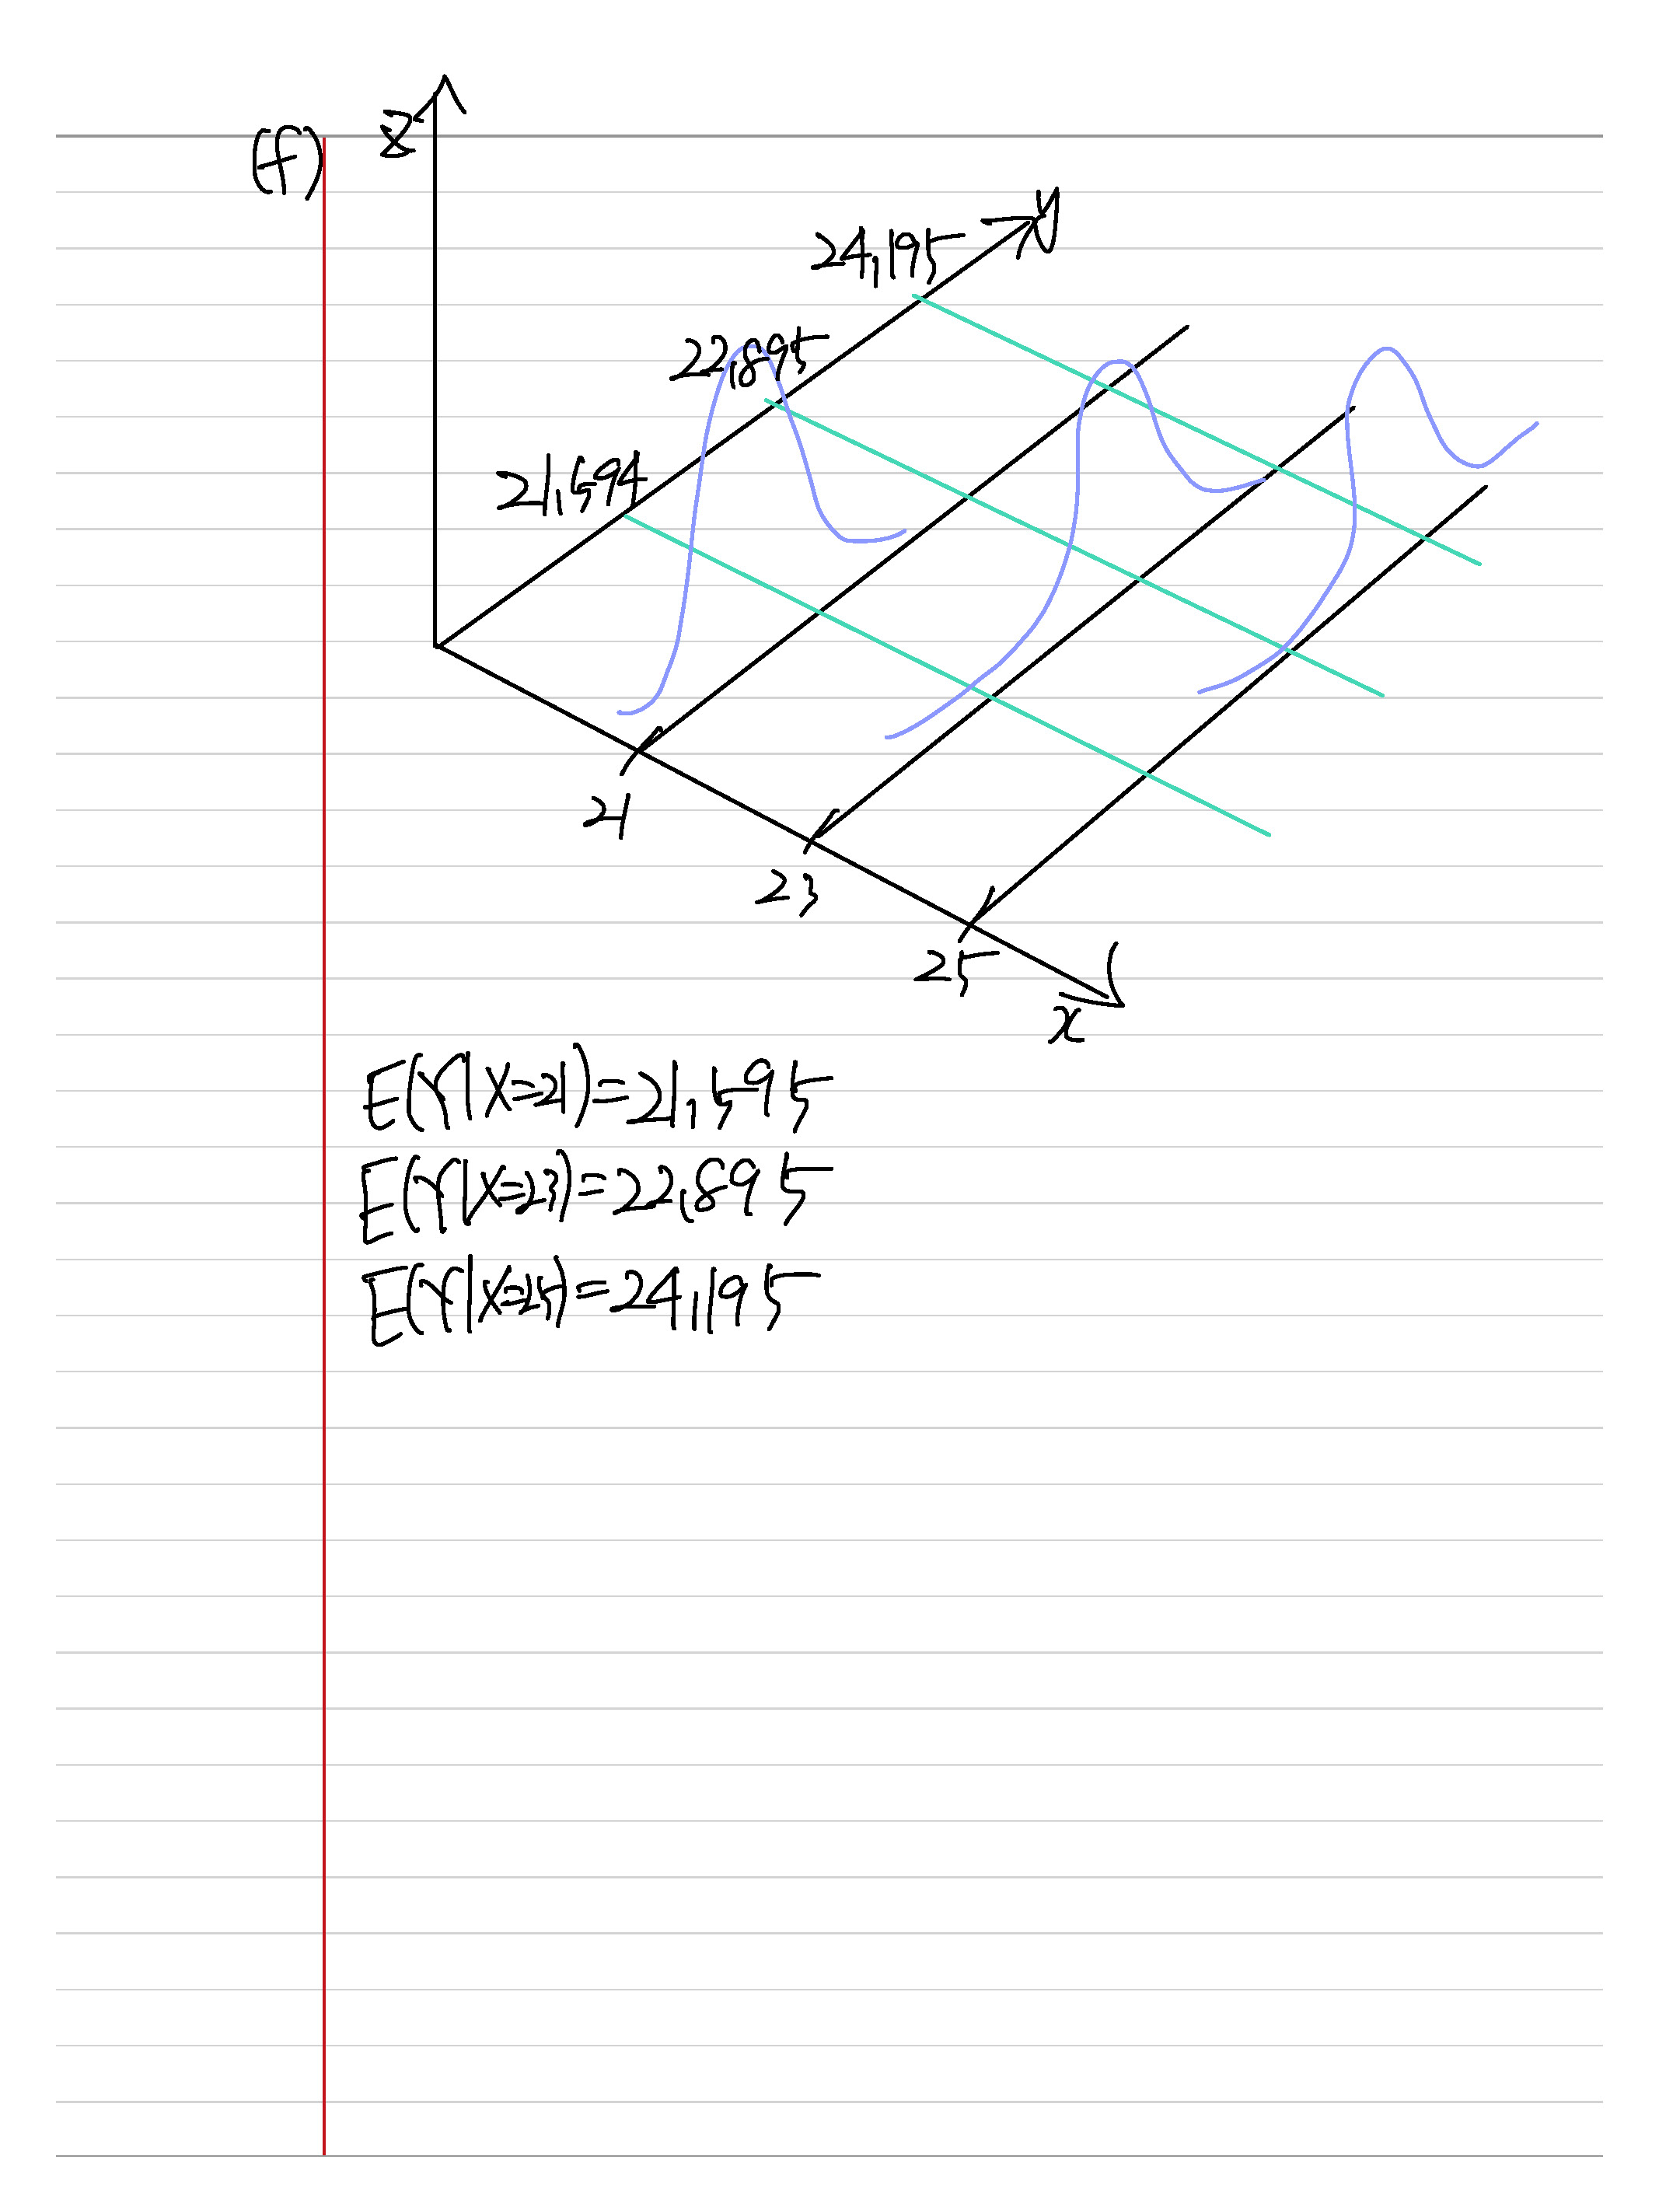 (f)
z
y
24,195
22,895
21,594
21
23
25
x
E(Y|X=21)=21,595
E(Y|X=23)=22,895
E(Y|X=25)=24,195